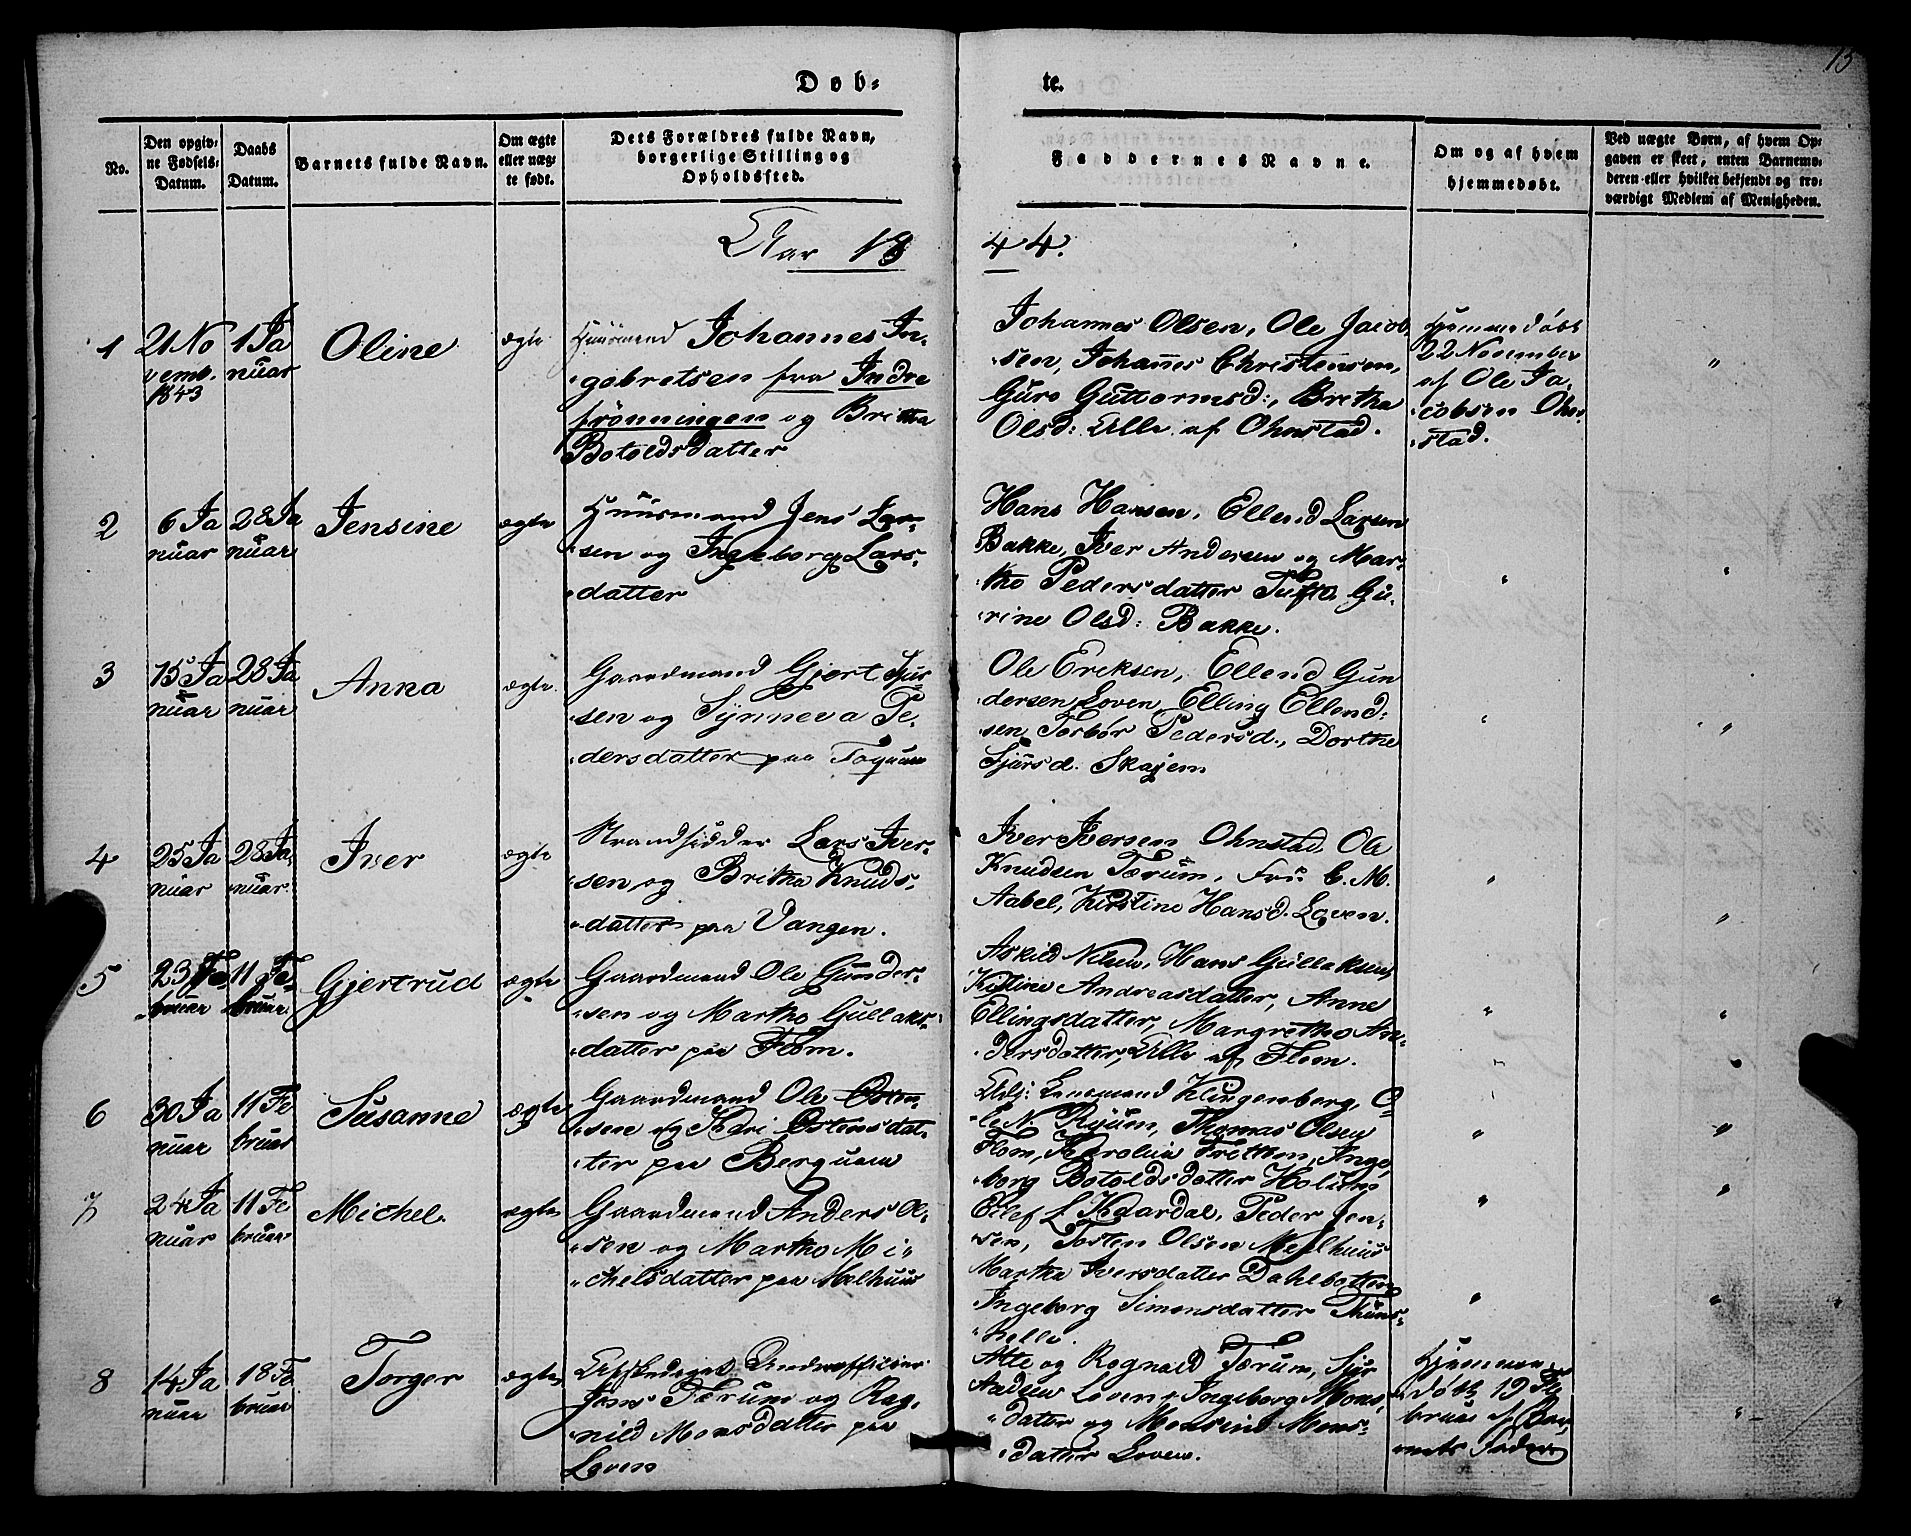 15
Døb-
te.
No.
Den opgiv-
ne Fødsels-
Datum.
Daabs
Datum.
Barnets fulde Navn.
Om ægte
eller uæg-
te født.
Dets Forældres fulde Navn,
borgerlige Stilling og
Opholdssted.
Faddernes Navne.
Om og af hvem
hjemmedøbt.
Ved uægte Børn, af hvem Op-
gaven er skeet, enten Barnemo-
deren eller hvilket bekjendt og tro-
værdigt Medlem af Menigheden.
Aar 18
44.
1
21 No
vemb.
1843
1 Ja
nuar
Oline
ægte
Huusmand Johannes In-
gebretsen fra Indre
frønningen og Britha
Botoldsdatter
Johannes Olsen, Ole Jacob
sen, Johannes Christensen,
Guro Guttormsd:, Bretha
Olsd: Alle af Ohnstad.
Hjemmedøbt
22 November
af Ole Ja-
cobsen Ohn-
stad.
"
2
6 Ja
nuar
28 Ja
nuar
Jensine
ægte
Huusmand Jens Lar-
sen og Ingeborg Lars-
datter
Hans Hansen, Ellend Larsen
Bakke, Iver Andersen og Mar-
tha Pedersdatter Tufto, Gu-
rine Olsd: Bakke.
"
"
3
15 Ja
nuar
28 Ja
nuar
Anna
ægte
Gaardmand Gjert Sjur
sen og Synneva Pe-
dersdatter paa Foquam
Ole Ereksen, Ellend Gun
dersen Loven, Elling Ellend-
sen, Torbør Pedersd., Dorthe
Sjursd. Skajem
"
"
4
25 Ja
nuar
28 Ja
nuar
Iver
ægte
Strandsidder Lars Iver-
sen og Britha Knuds-
datter paa Vangen.
Iver Iversen Ohnstad, Ole
Knudsen Tærum, Frü C. M.
Aabel, Kirstine Hansd. Loven.
"
"
5
23 Fe
bruar
11 Fe-
bruar
Gjertrud
ægte
Gaardmand Ole Gunder-
sen og Martha Gullaks-
datter paa Flom.
Askild Nilsen, Hans Gullaksen,
Kirstine Andreasdatter, Anne
Ellingsdatter, Margretha An-
dersdatter, Alle af Flom.
"
"
6
30 Ja
nuar
11 Fe
bruar
Susanne
ægte
Gaardmand Ole Osten-
sen og Kari Ostensdat-
ter paa Berquam
Adj: Lensmand Klingenberg, O-
le N. Ryum, Thomas Olsen
Flom, Karolina Fretten, Inge-
borg Botoldsdatter Holum
"
"
7
24 Ja
nuar
11 Fe
bruar
Michel.
ægte
Gaardmand Anders Ol-
sen og Martha Mi-
chelsdatter paa Melhuus
Ellef L Kaardal, Peder Jen-
sen, Tosten Olsen Melhuus
Martha Iversdatter Dahlbotten
Ingeborg Simonsdatter Thuns-
helle.
"
"
8
14 Ja
nuar
18 Fe
bruar
Torger
ægte
Afskediget Underofficier
Jens Tærum og Rag-
nild Monsdatter paa
Loven
Atle og Rognald Tærum, Sjur
Andsen Loven, Ingeborg Mons-
datter og Monsine Mons-
datter Loven.
Hjemme-
døbt 19 Fe
bruar af Bar-
nets Fader
"